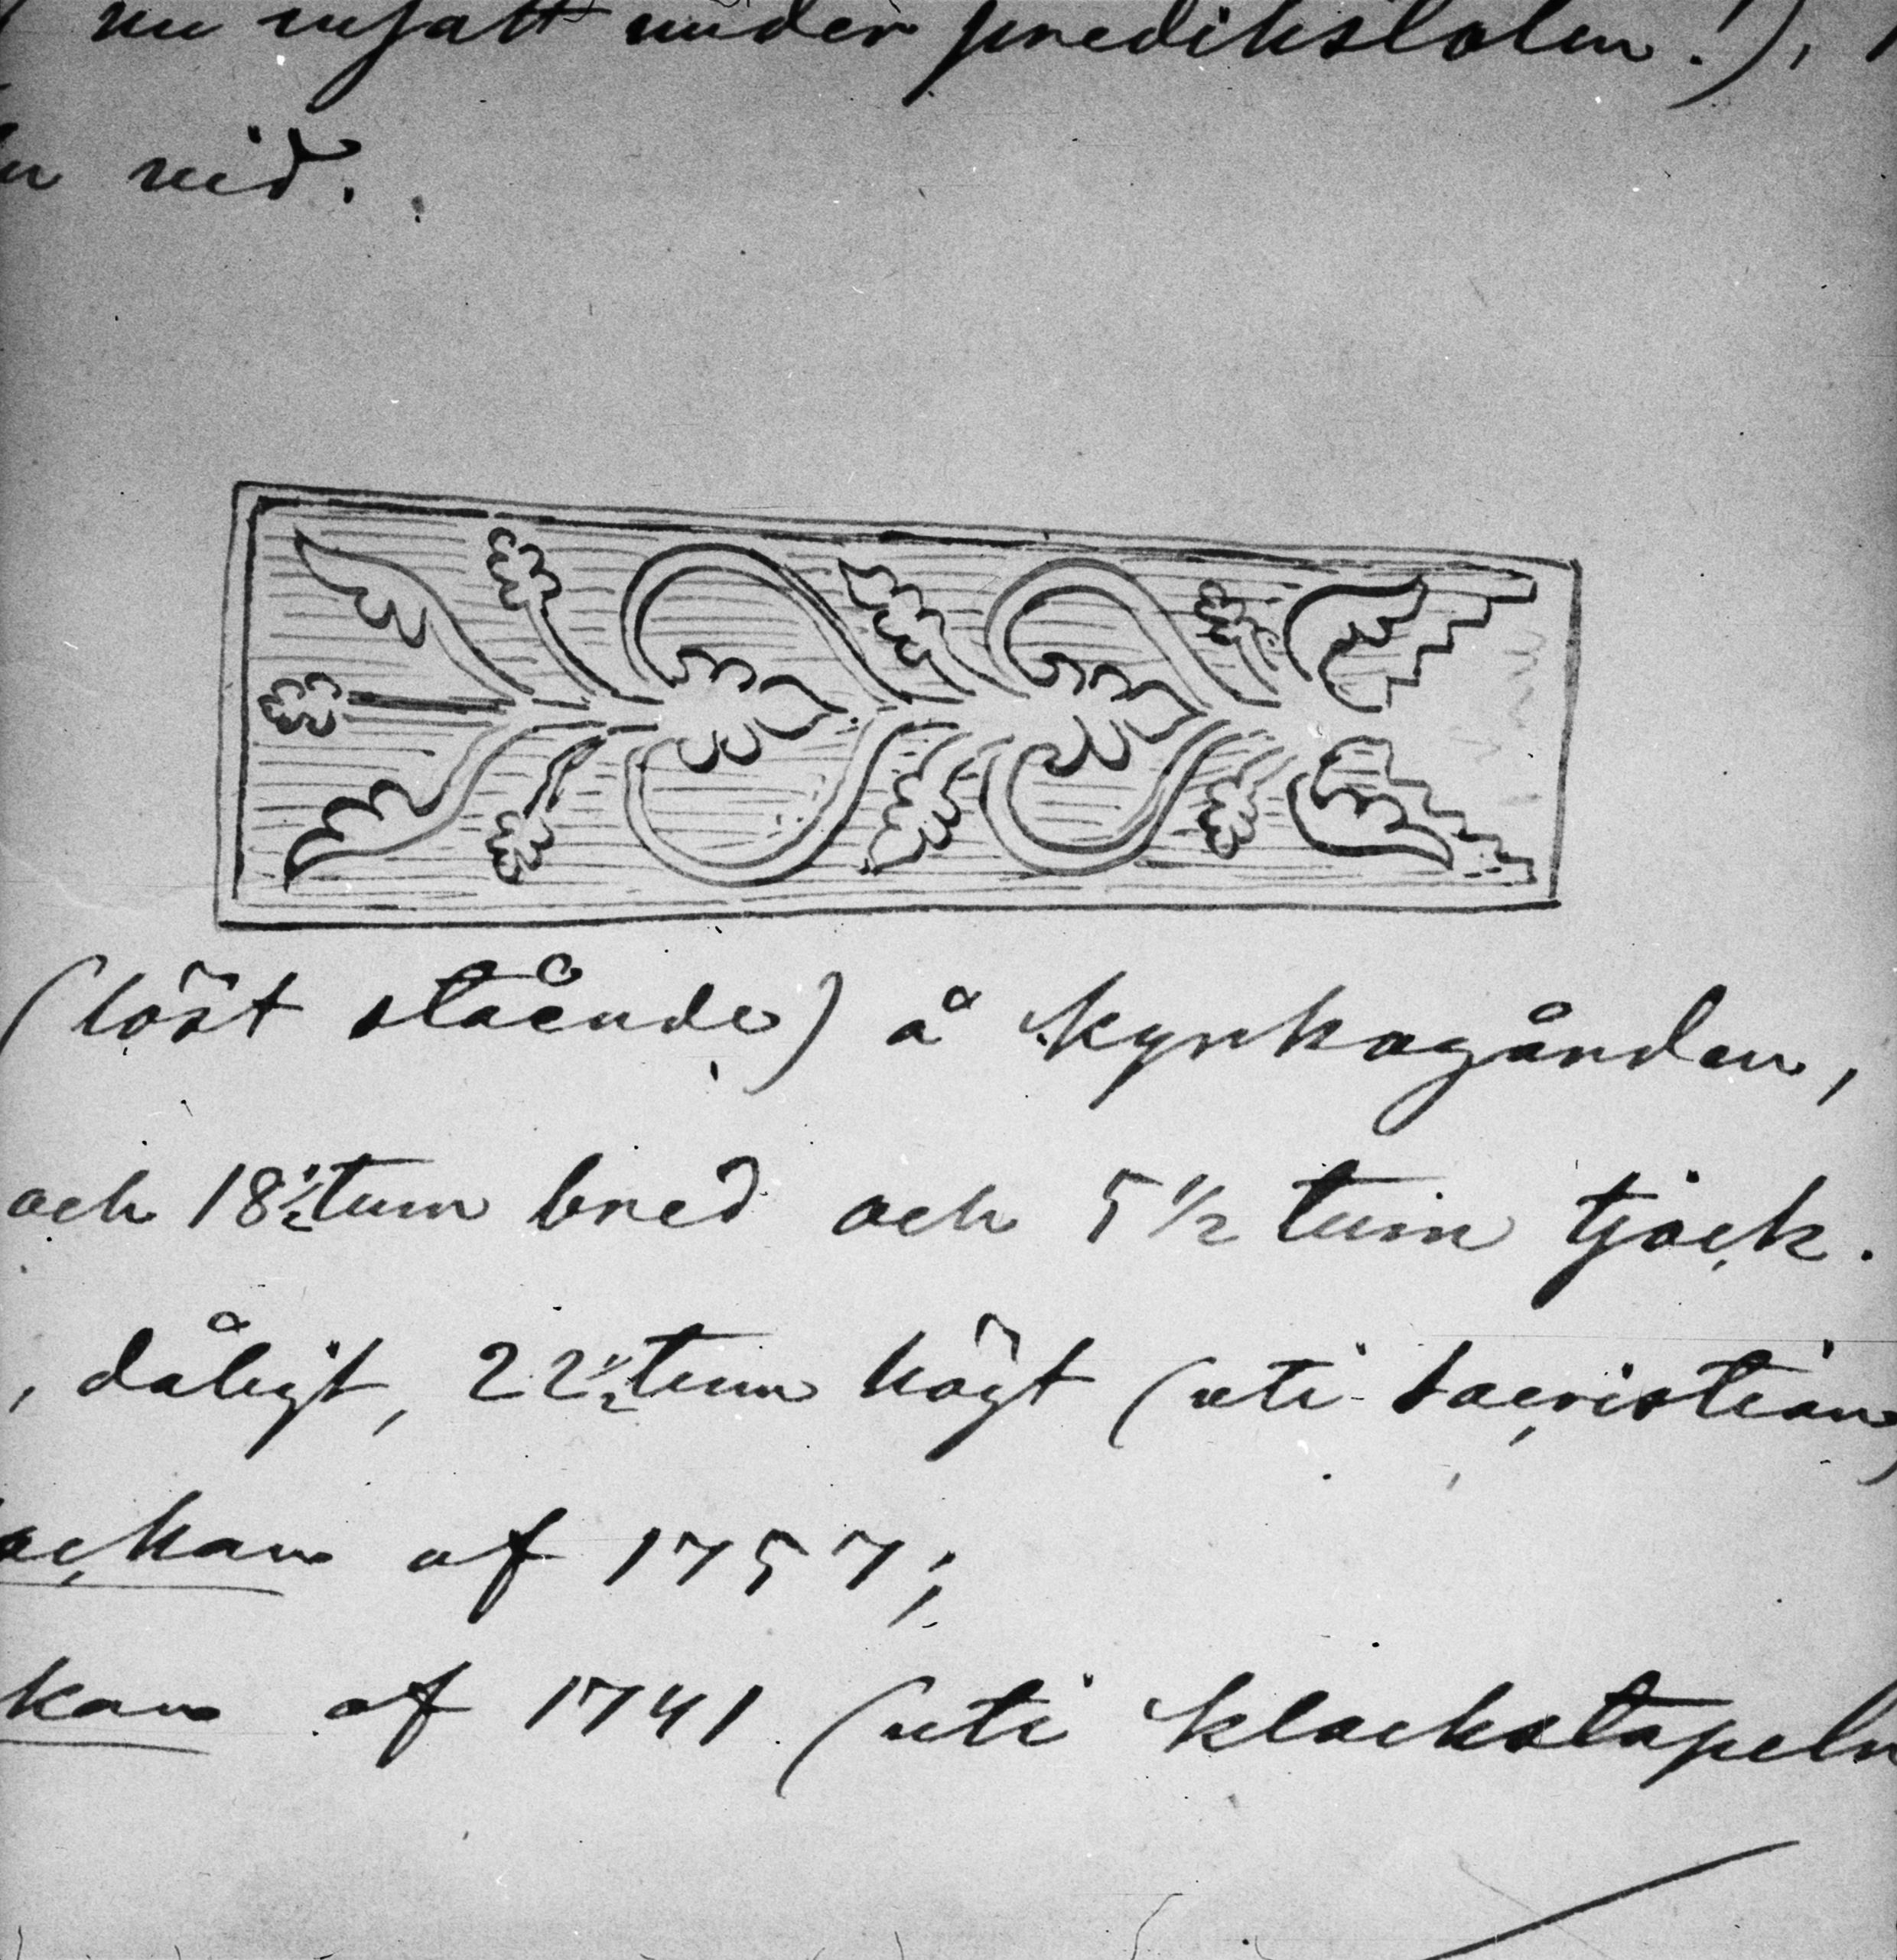 nu insatt under predikstolen!),
vid.
(löst stående) å kyrkogården,
och 18½ tum bred och 5½ tum tjock.
, dåligt, 22½ tum högt (uti sacristian)
ockan af 1757;
kan af 1741 (uti klockstapeln